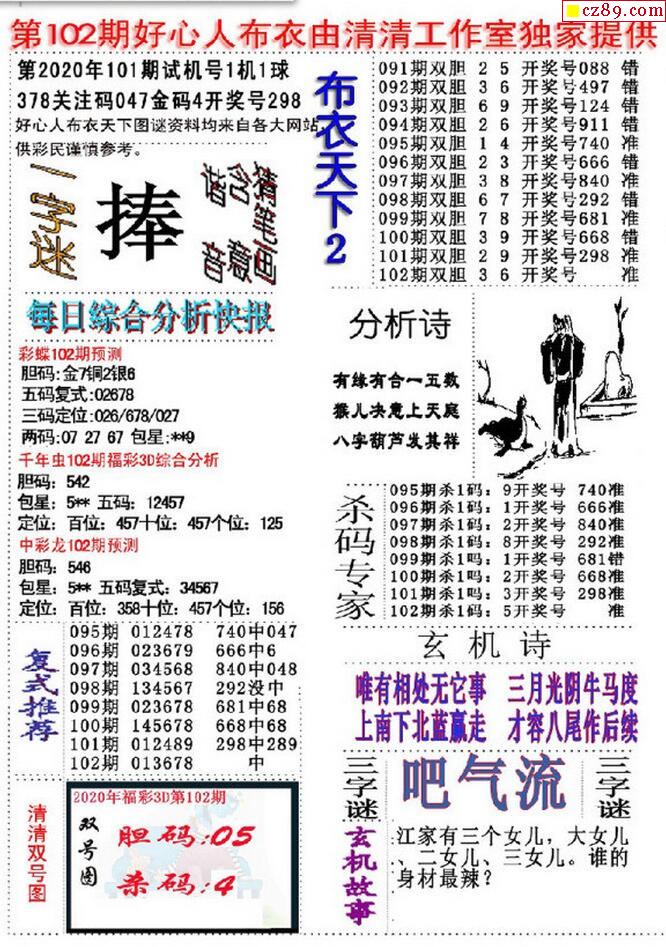 cz89.com
第102期好心人布衣由清清工作室独家提供
第2020年101期试机号1机1球
378关注码047金码4开奖号298
好心人布衣天下图谜资料均来自各大网站,
供彩民谨慎参考。
一字迷
捧
谐音
含意
猜笔画
布衣天下2
091期双胆 2 5 开奖号088 错
092期双胆 3 6 开奖号497 错
093期双胆 6 9 开奖号124 错
094期双胆 2 6 开奖号911 错
095期双胆 1 4 开奖号740 准
096期双胆 2 3 开奖号666 错
097期双胆 3 8 开奖号840 准
098期双胆 6 7 开奖号292 错
099期双胆 7 8 开奖号681 准
100期双胆 3 9 开奖号668 错
101期双胆 2 9 开奖号298 准
102期双胆 3 6 开奖号 准
每日综合分析快报
彩蝶102期预测
胆码:金7铜2银6
五码复式:02678
三码定位:026/678/027
两码:07 27 67 包星:**9
千年虫102期福彩3D综合分析
胆码: 542
包星: 5** 五码: 12457
定位: 百位: 457十位: 457个位: 125
中彩龙102期预测
胆码: 546
包星: 5** 五码复式: 34567
定位: 百位: 358十位: 457个位: 156
分析诗
有缘有合一五数
猴儿决意上天庭
八字葫芦发其祥
杀码专家
095期杀1码: 9开奖号 740准
096期杀1码: 1开奖号 666准
097期杀1码: 2开奖号 840准
098期杀1码: 8开奖号 292准
099期杀1码: 1开奖号 681错
100期杀1码: 2开奖号 668准
101期杀1码: 3开奖号 298准
102期杀1码: 5开奖号 准
复式推荐
095期 012478 740中047
096期 023679 666中6
097期 034568 840中048
098期 134567 292没中
099期 023678 681中68
100期 145678 668中68
101期 012489 298中289
102期 013678 中
玄机诗
唯有相处无它事 三月光阴牛马度
上南下北蓝赢走 才容八尾作后续
三字谜
吧气流
三字谜
清清双号图
2020年福彩3D第102期
双号图
胆码:05
杀码:4
玄机故事
江家有三个女儿，大女儿
、二女儿、三女儿。谁的
身材最辣？